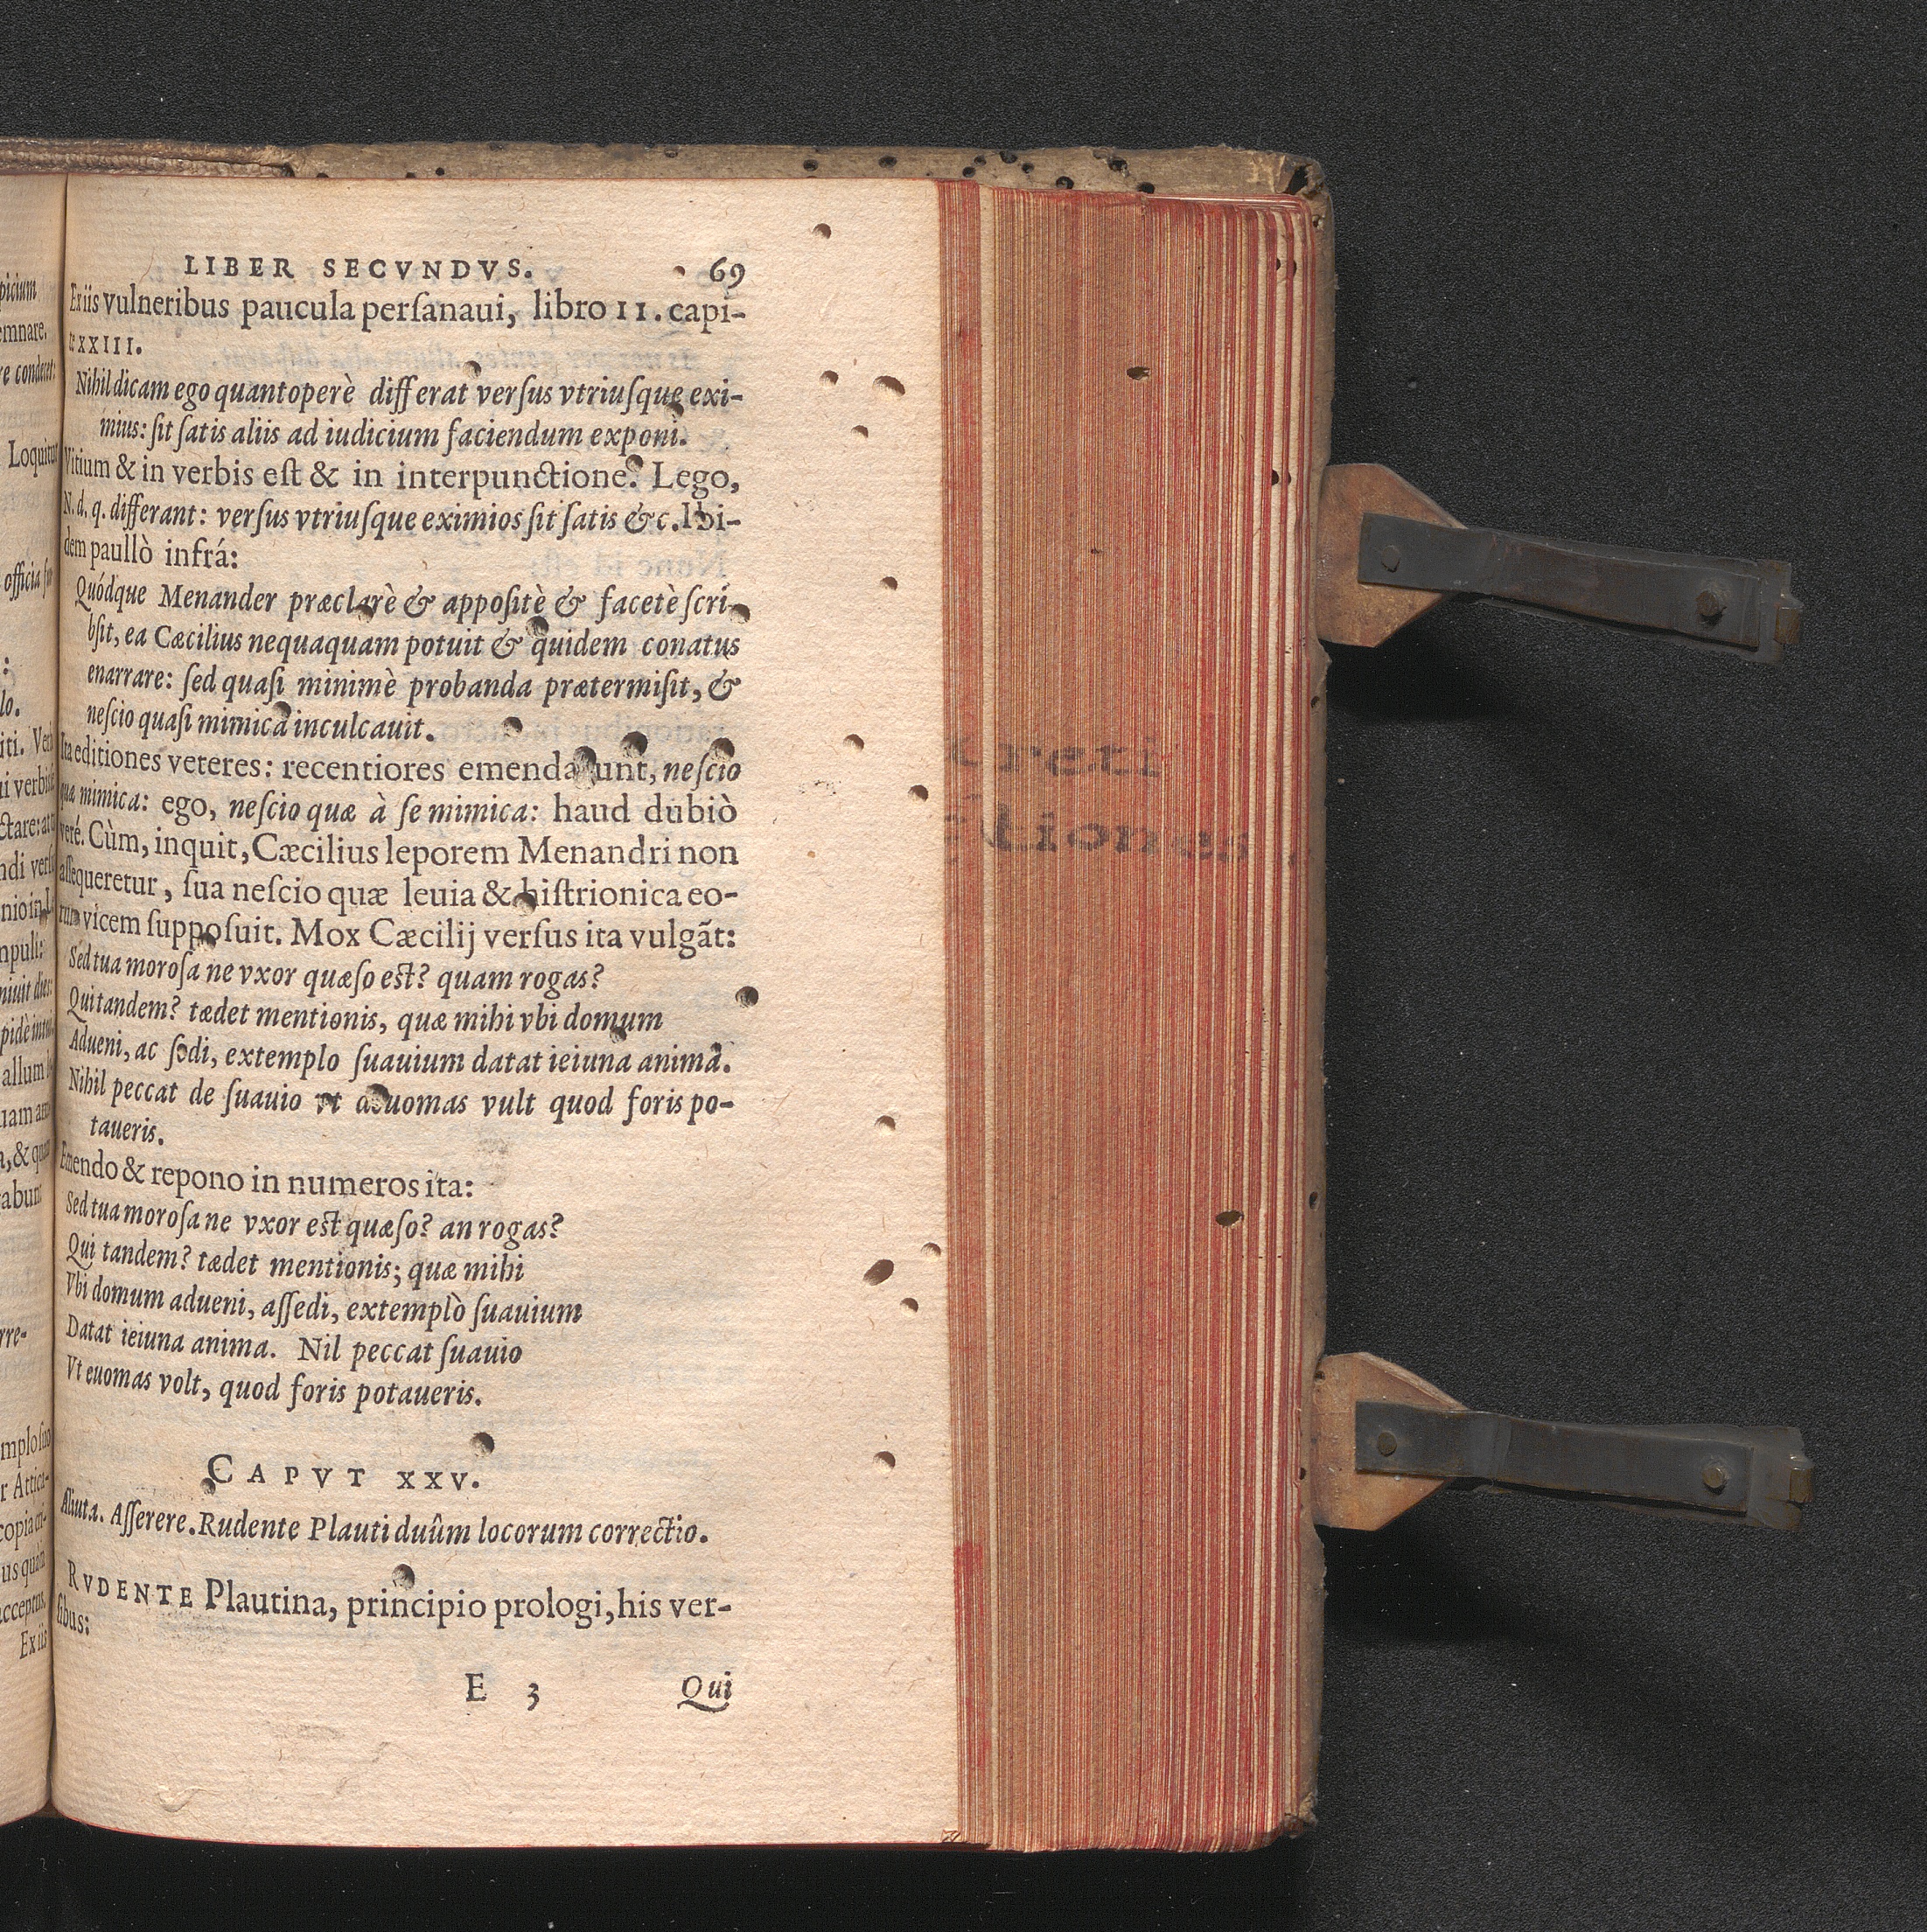 picium
emnare.
re conderet:
Loquitur
officia
:
lo.
iti.
ui verbis
ctare:
ndi
mpuli:
niuit dies:
allum
uam
a, & qu
abun
rre-
mplo
r Attica-
copia
us
acceptus.
Ex iis
LIBER SECVNDVS. 69
Ex iis vulneribus paucula perſanaui, libro II. capi-
te XXIII.
Nihil dicam ego quantoperè differat verſus vtriuſque exi-
mius: ſit ſatis aliis ad iudicium faciendum exponi.
Vitium & in verbis eſt & in interpunctione. Lego,
N. d. q. differant: verſus vtriuſque eximios ſit ſatis &c. Ibi-
dem paullò infrá:
Quódque Menander præclarè & appoſitè & facetè ſcri-
bſit, ea Cæcilius nequaquam potuit & quidem conatus
enarrare: ſed quaſi minimè probanda prætermiſit, &
neſcio quaſi mimica inculcauit.
Ita editiones veteres: recentiores emendarunt, neſcio
quæ mimica: ego, neſcio quæ à ſe mimica: haud dubiò
veré. Cùm, inquit, Cæcilius leporem Menandri non
aſſequeretur, ſua neſcio quæ leuia & hiſtrionica eo-
rum vicem ſuppoſuit. Mox Cæcilij verſus ita vulgãt:
Sed tua moroſa ne vxor quæſo eſt? quam rogas?
Qui tandem? tædet mentionis, quæ mihi vbi domum
Adueni, ac ſedi, extemplo ſuauium datat ieiuna anima.
Nihil peccat de ſuauio vt deuomas vult quod foris po-
taueris.
Emendo & repono in numeros ita:
Sed tua moroſa ne vxor eſt quæſo? an rogas?
Qui tandem? tædet mentionis; quæ mihi
Vbi domum adueni, aſſedi, extemplò ſuauium
Datat ieiuna anima. Nil peccat ſuauio
Vt euomas volt, quod foris potaueris.
CAPVT XXV.
Aliuta. Aſſerere. Rudente Plauti duûm locorum correctio.
RVDENTE Plautina, principio prologi, his ver-
ſibus:
E 3 Qui